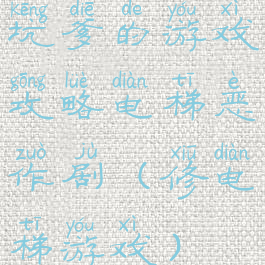 kēng diē de yóu xì
坑爹的游戏
gōng lüè diàn tī è
攻略电梯恶
zuò jù xiū diàn
作剧(修电
tī yóu xì
梯游戏)